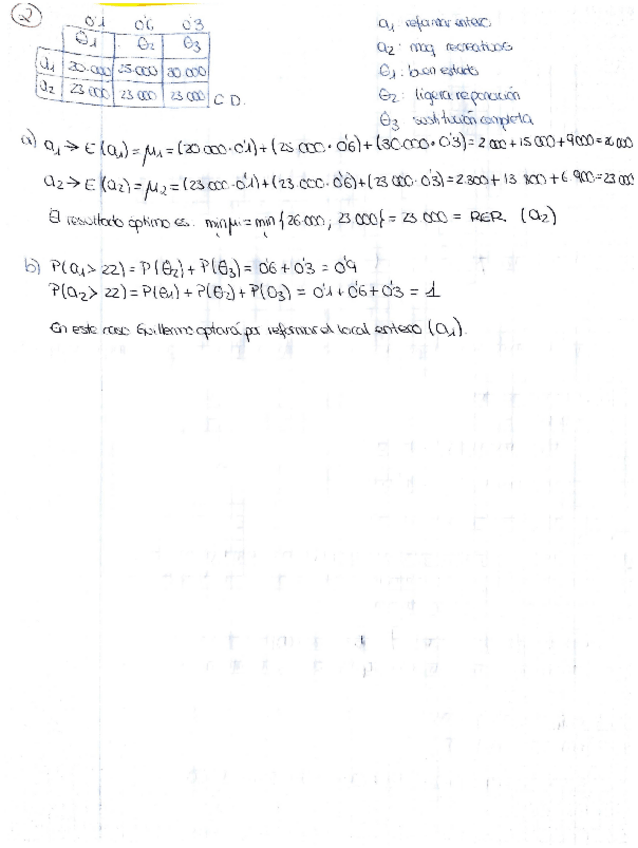 2
0'1 0'6 0'3
θ1 θ2 θ3
a1 20.000 25.000 30.000
a2 23.000 23.000 23.000 C.D.
a1: reformar entero
a2: maq. recreativos
θ1: buen estado
θ2: ligera reparación
θ3: sustitución completa
a) a1 → E(a1) = μ1 = (20.000·0'1) + (25.000·0'6) + (30.000·0'3) = 2.000 + 15.000 + 9.000 = 26.000
a2 → E(a2) = μ2 = (23.000·0'1) + (23.000·0'6) + (23.000·0'3) = 2.300 + 13.800 + 6.900 = 23.000
El resultado óptimo es: min μi = min {26.000; 23.000} = 23.000 = RER. (a2)
b) P(a1 > 22) = P(θ2) + P(θ3) = 0'6 + 0'3 = 0'9
P(a2 > 22) = P(θ1) + P(θ2) + P(θ3) = 0'1 + 0'6 + 0'3 = 1
En este caso Guillermo optará por reformar el local entero (a1).